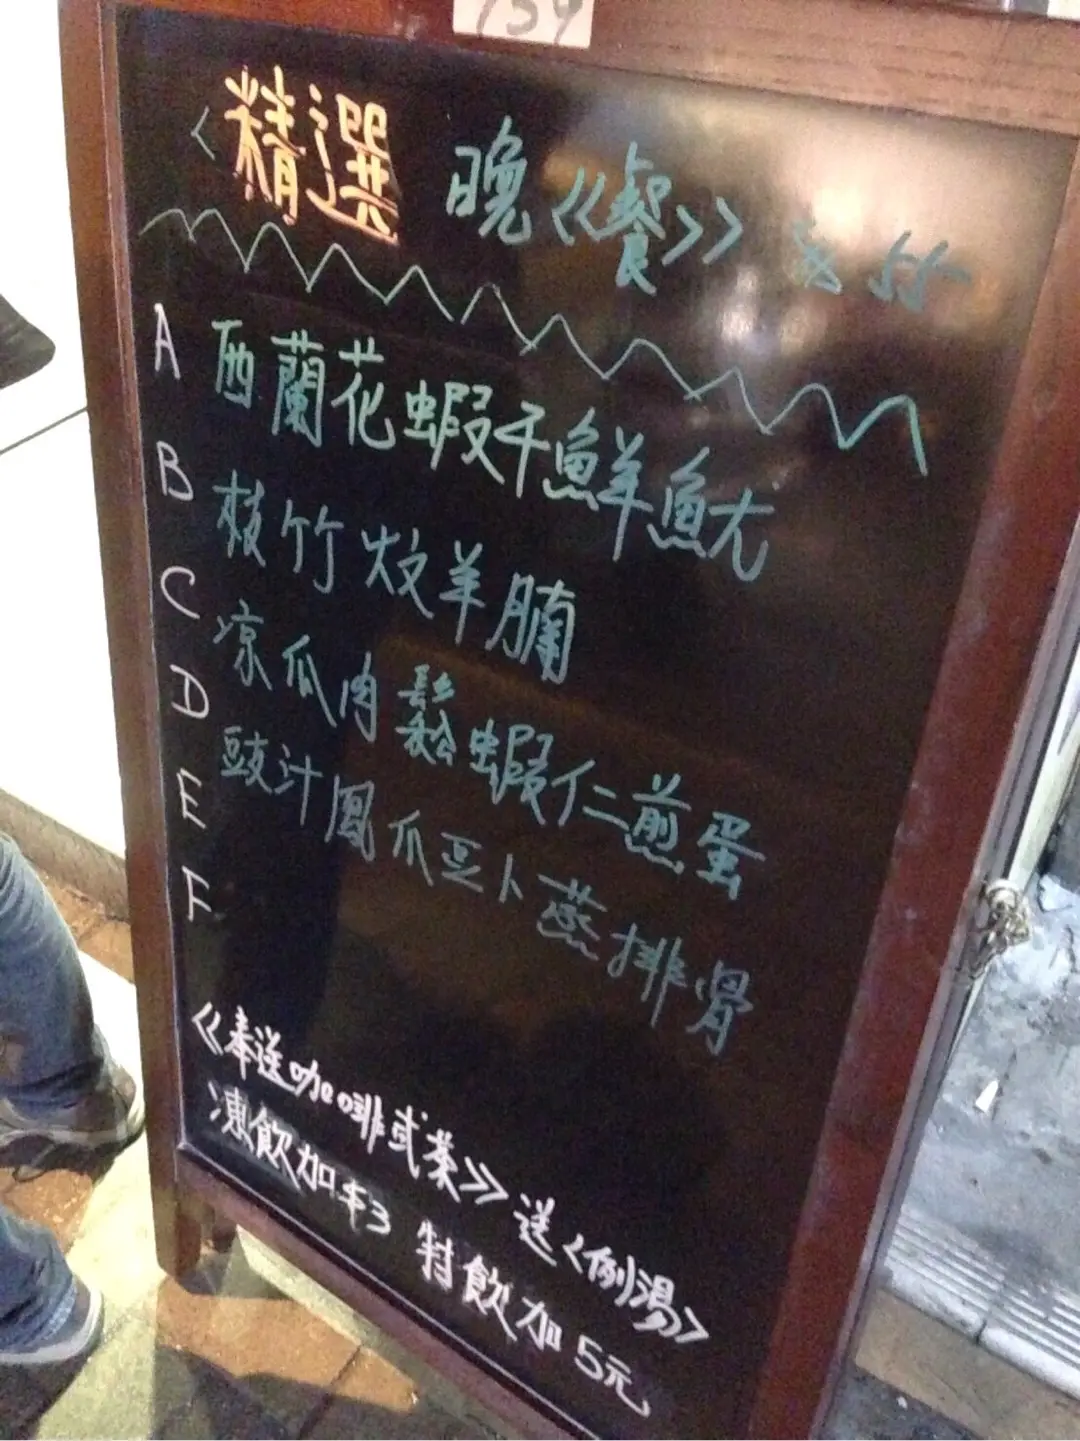 159
<精選 晚《餐》 $ 55
A 西蘭花蝦干鮮魷
B 枝竹炆羊腩
C 凉瓜肉鬆蝦仁煎蛋
D 豉汁鳳爪豆卜蒸排骨
E
F
《奉送咖啡或茶》送<例湯>
凍飲加$3 特飲加5元